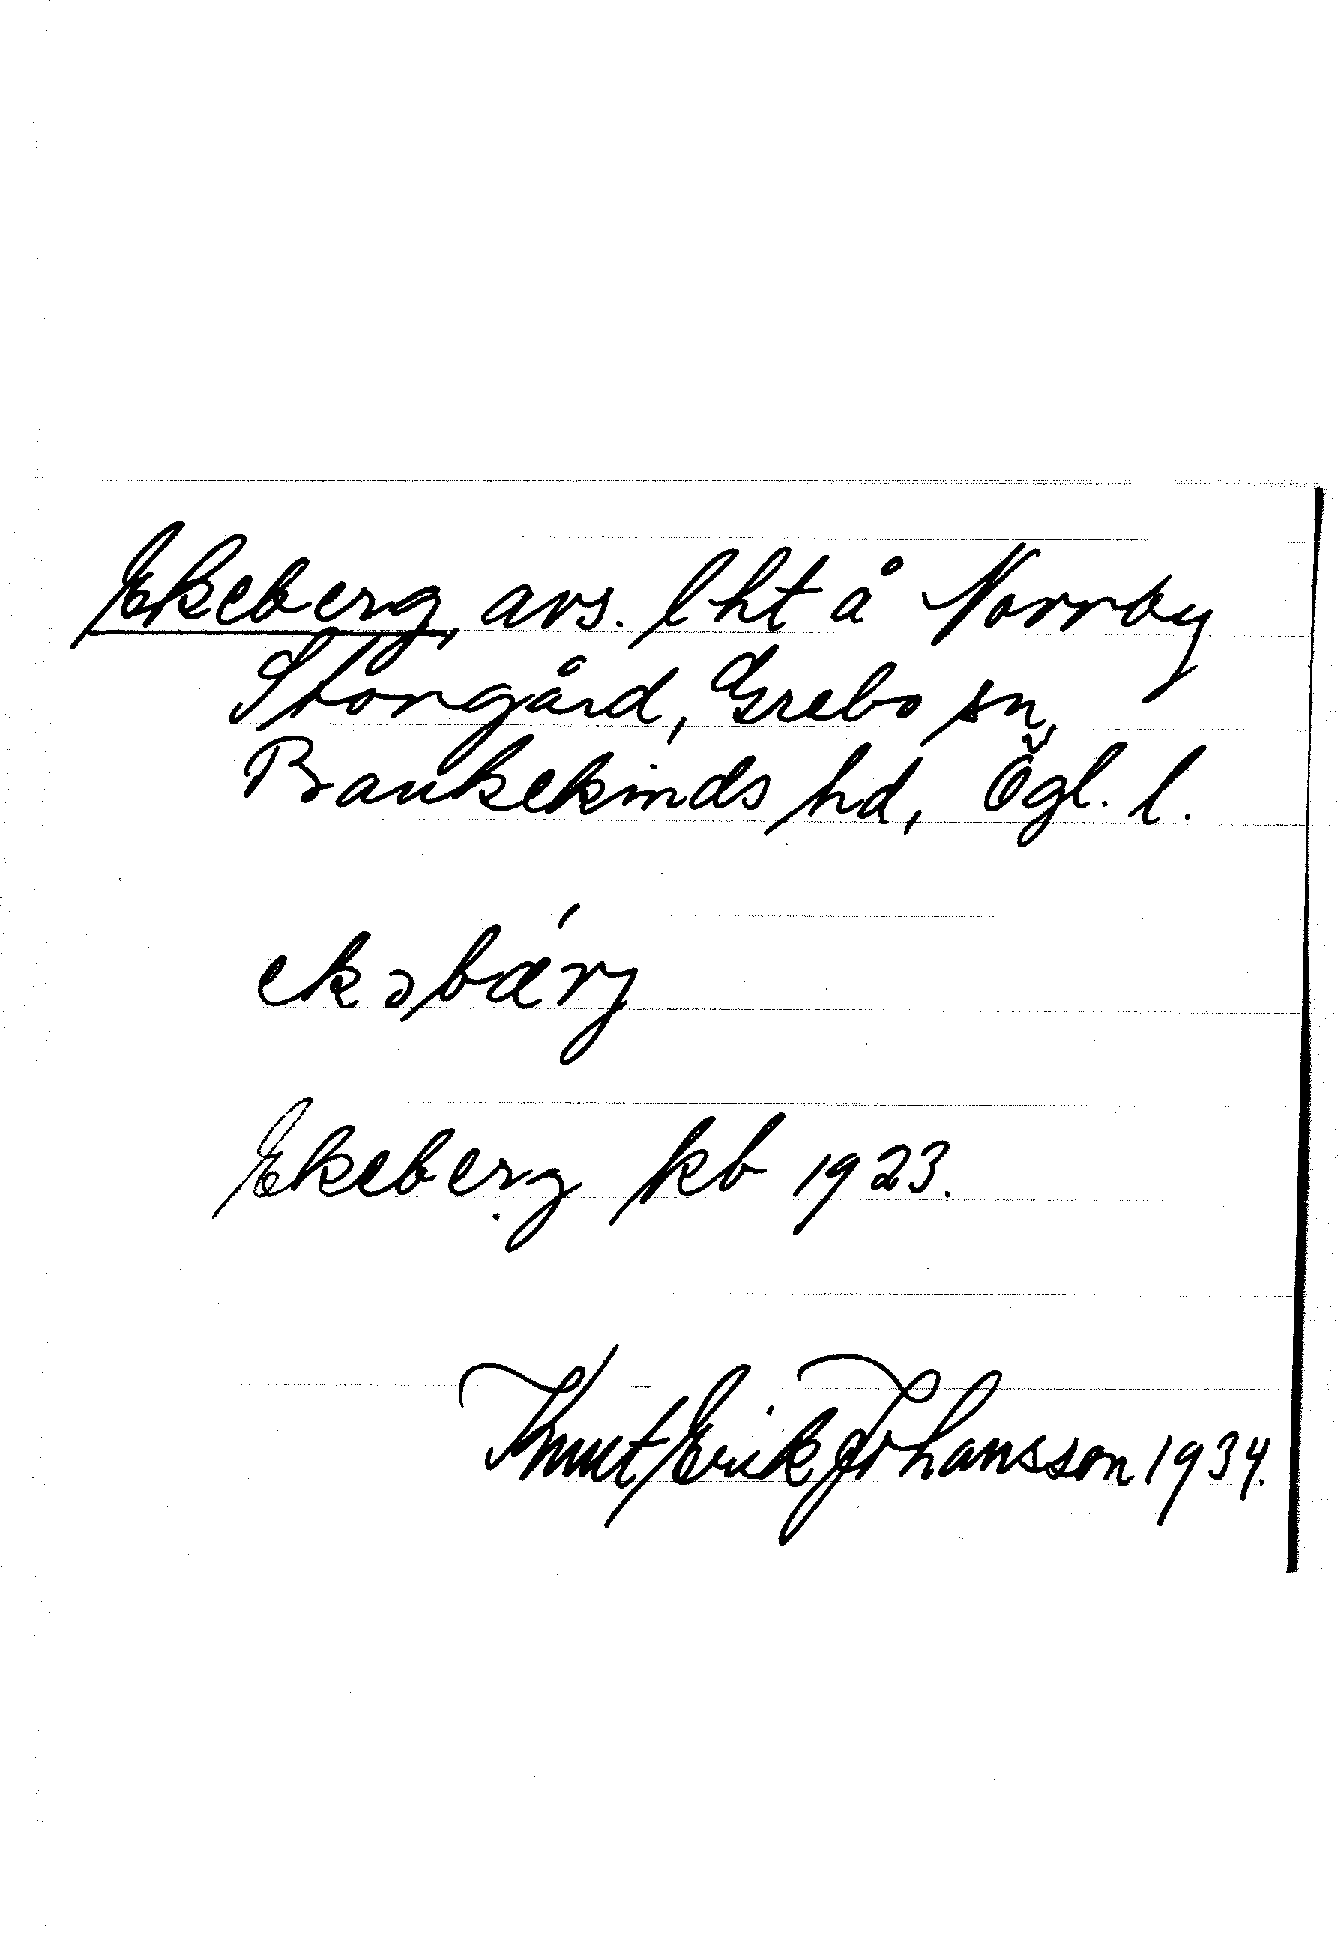 Ekeberg, avs. lht å Norrby
Storgård, Grebo sn,
Bankekinds hd, Ögl. l.
ekəbærj
Ekeberg kb 1923.
Knut Erik Johansson 1934.